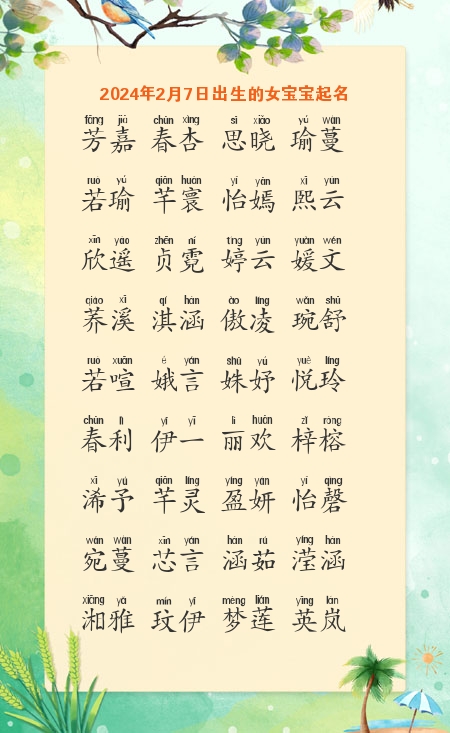 2024年2月7日出生的女宝宝起名
fāng jiā chūn xìng sī xiǎo yú wàn
芳嘉 春杏 思晓 瑜蔓
ruò yú qiān huán yí yān xī yún
若瑜 芊寰 怡嫣 熙云
xīn yáo zhēn ní tíng yún yuàn wén
欣遥 贞霓 婷云 媛文
qiáo xī qí hán ào líng wǎn shū
荞溪 淇涵 傲凌 琬舒
ruò xuān é yán shū yú yuè líng
若喧 娥言 姝妤 悦玲
chūn lì yī yī lì huān zǐ róng
春利 伊一 丽欢 梓榕
xī yú qiān líng yíng yán yí qìng
浠予 芊灵 盈妍 怡磬
wǎn wàn xīn yán hán rú yíng hán
宛蔓 芯言 涵茹 滢涵
xiāng yǎ mín yī mèng lián yīng lán
湘雅 玟伊 梦莲 英岚